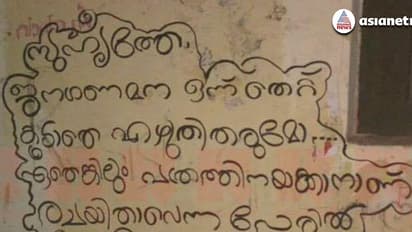 asianet
സുഹൃത്തേ,
ജനഗണമന ഒന്ന് തെറ്റ്
കൂടാതെ എഴുതിതരുമോ....
ഏതെങ്കിലും പത്രത്തിനയക്കാനാണ്
രചയിതാവെന്ന പേരിൽ